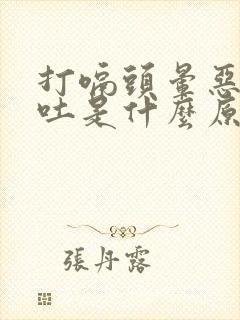 打嗝頭暈惡
吐是什麼原
張丹露